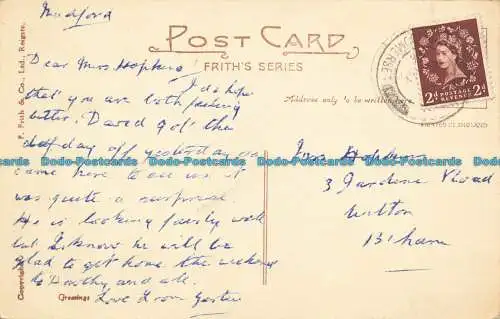 Medford
POST CARD
FRITH'S SERIES
F. Frith & Co., Ltd., Reigate.
Dear Mrs Hopkins
I do hope
that you are both feeling
better. David got the
half day off yesterday so
came here to see us it
was quite a surprise.
He is looking fairly well
but I know he will be
glad to get home the weekend
to Dorothy and all.
Greetings Love from
Copyright
Address only to be written here.
POSTAGE REVENUE
2d 2d
Hopkins
3 Gardens Road
Wilton
B'ham
Dodo-Postcards Dodo-Postcards Dodo-Postcards Dodo-Postcards Dodo-Postcards